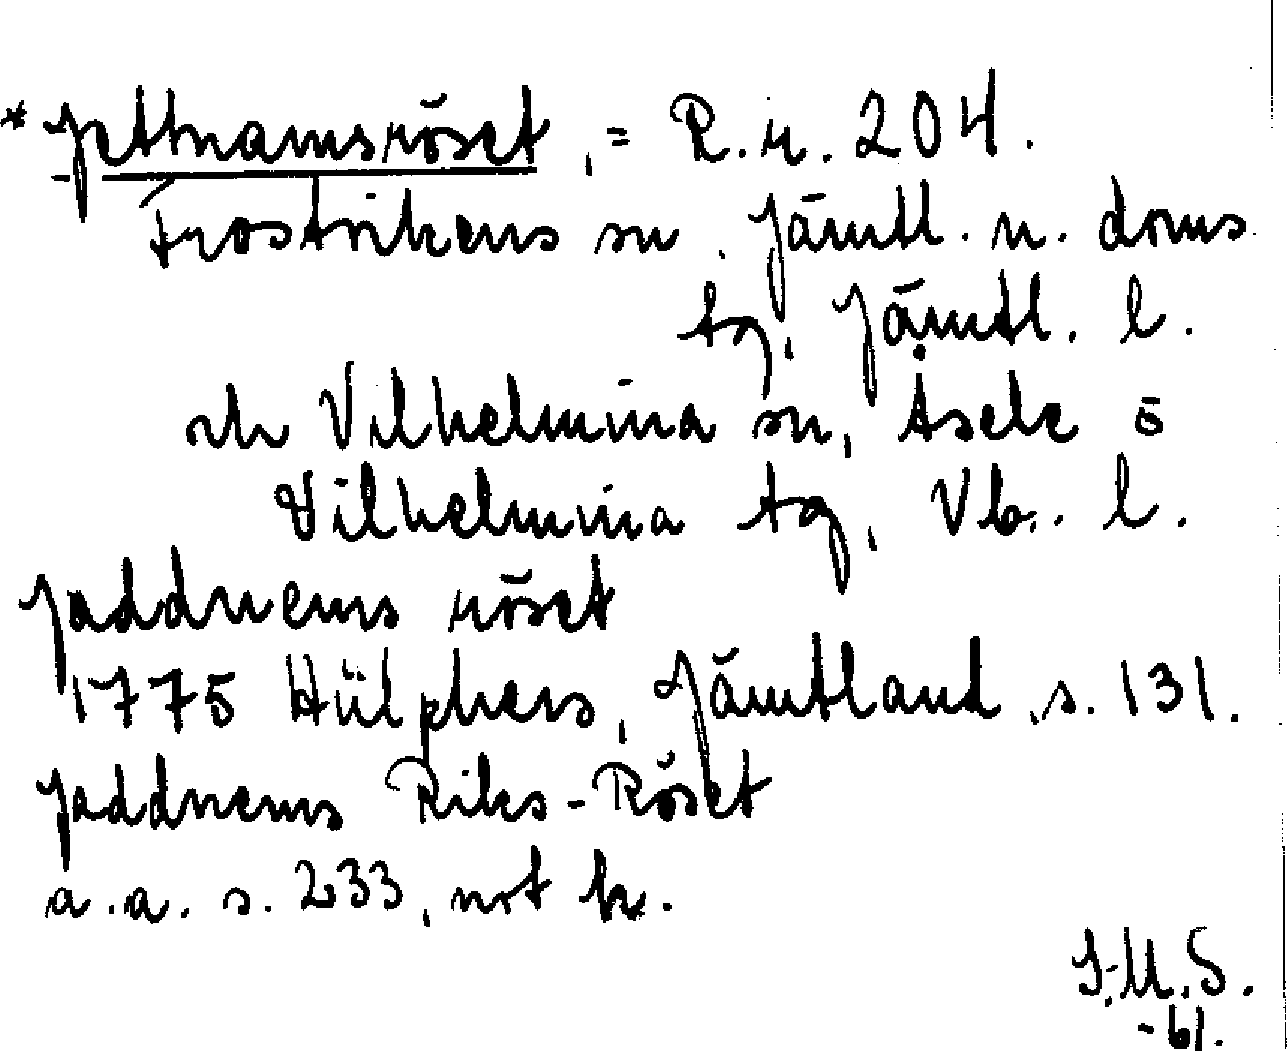 * Jettnamsröset, = R.r. 204.
Frostvikens sn, Jämtl. n. doms
tg, Jämtl. l.
och Vilhelmina sn, Åsele o
Vilhelmina tg, Vb. l.
Jaddnems röset
1775 Hülphers, Jämtland, s. 131.
Jaddnems Riks-Röset
a.a. s. 233, not k.
J.M.S.
-61.